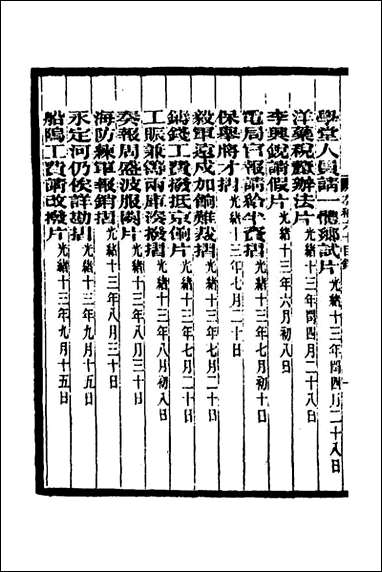 學堂人員請一體鄉試片光緒十三年閏四月二十八日
洋藥稅釐辦法片光緒十三年閏四月二十八日
李興銳請假片光緒十三年六月初八日
電局官報請給半資摺光緒十三年七月初十日
保舉將才摺光緒十三年七月二十日
毅軍遠戍加餉難裁摺光緒十三年七月二十日
鑄錢工費撥抵京餉片光緒十三年七月二十日
工賑兼籌兩庫湊撥摺光緒十三年八月初八日
奏報周盛波服闋片光緒十三年八月三十日
海防練軍報銷摺光緒十三年八月三十日
永定河仍俟詳勘摺光緒十三年九月十五日
船隖工費請改撥片光緒十三年九月十五日